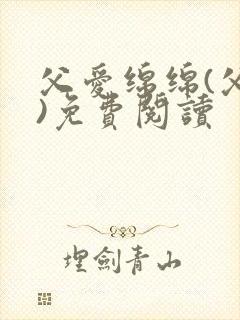 父愛綿綿(父
)免費閱讀
埋劍青山